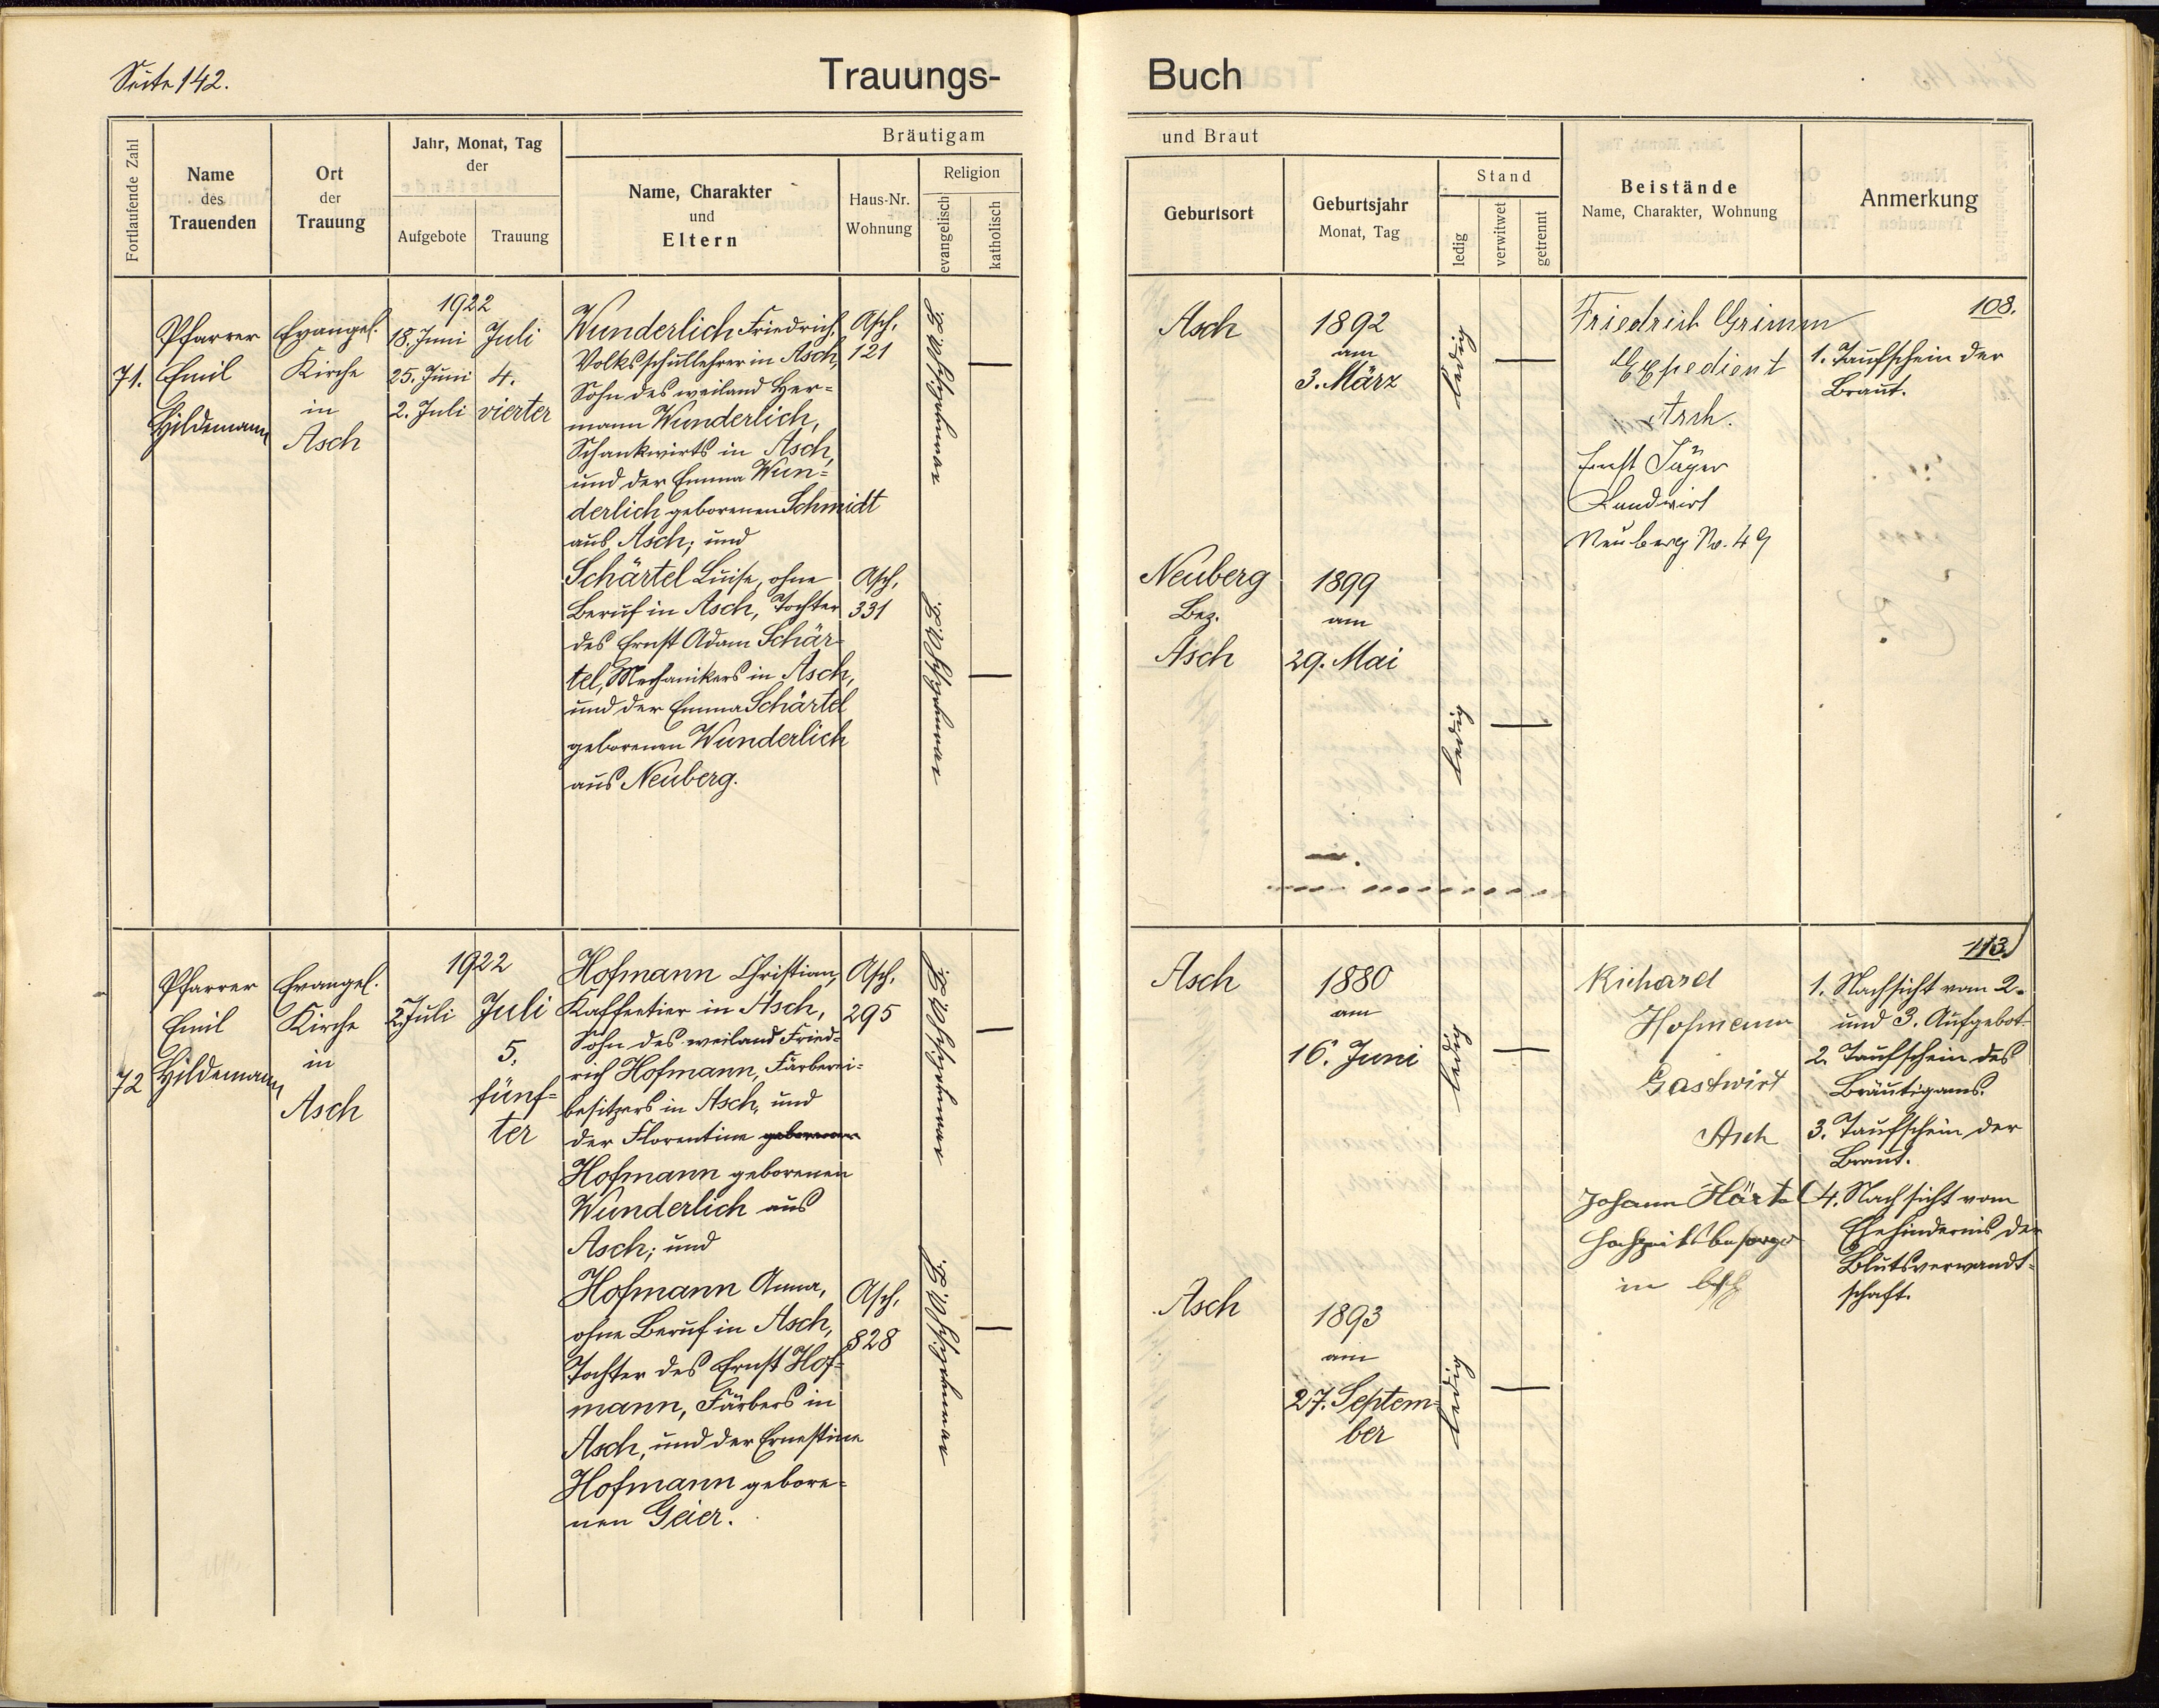 Seite 142.
Trauungs-Buch
Fortlaufende Zahl
Name
des
Trauenden
Ort
der
Trauung
Jahr, Monat, Tag
der
Aufgebote
Trauung
Bräutigam
Name, Charakter
und
Eltern
Haus-Nr.
Wohnung
Religion
evangelisch
katholisch
und Braut
Geburtsort
Geburtsjahr
Monat, Tag
Stand
ledig
verwitwet
getrennt
Beistände
Name, Charakter, Wohnung
Anmerkung
71.
Pfarrer
Emil
Hildemann
Evangel.
Kirche
in
Asch
1922
18. Juni
25. Juni
2. Juli
Juli
4.
vierter
Wunderlich Friedrich,
Volksschullehrer in Asch,
Sohn des weiland Her-
mann Wunderlich,
Schankwirts in Asch,
und der Emma Wun-
derlich geborenen Schmidt
aus Asch; und
Schärtel Luise, ohne
Beruf in Asch, Tochter
des Ernst Adam Schär-
tel, Mechanikers in Asch,
und der Emma Schärtel
geborenen Wunderlich
aus Neuberg.
Asch,
121
Asch,
331
Asch
1892
am
3. März
ledig
Neuberg
Bez.
Asch
1899
am
29. Mai
ledig
Friedrich Grimm
Expedient
Asch.
Ernst Jäger
Landwirt
Neuberg No. 49
108.
1. Taufschein der
Braut.
72
Pfarrer
Emil
Hildemann
Evangel.
Kirche
in
Asch
1922
2. Juli
Juli
5.
fünf-
ter
Hofmann Christian,
Kaffeetier in Asch,
Sohn des weiland Fried-
rich Hofmann, Färberei-
besitzers in Asch, und
der Florentine geborenen
Hofmann geborenen
Wunderlich aus
Asch; und
Hofmann Anna,
ohne Beruf in Asch,
Tochter des Ernst Hof-
mann, Färbers in
Asch, und der Ernestine
Hofmann gebore-
nen Geier.
Asch,
295
Asch,
828
Asch
1880
am
16. Juni
ledig
Asch
1893
am
27. Septem-
ber
ledig
Richard
Hofmann
Gastwirt
Asch
Johann Härtel
Hochzeitsbesorger
in Asch
113.
1. Nachsicht vom 2.
und 3. Aufgebot
2. Taufschein des
Bräutigams.
3. Taufschein der
Braut.
4. Nachsicht vom
Ehehindernis der
Blutsverwandt-
schaft.